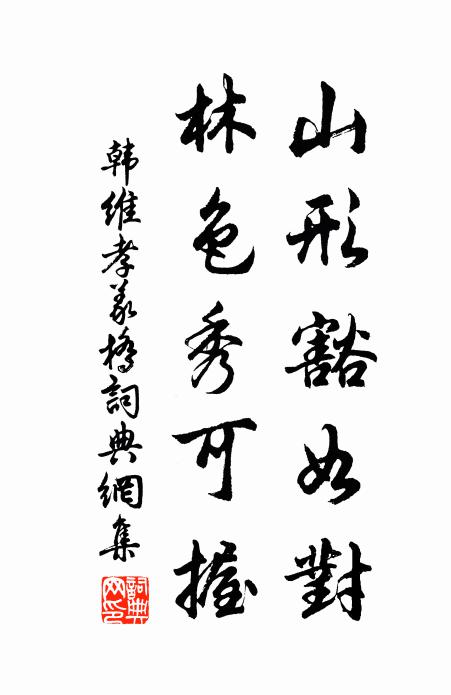 山形豁如對
林色秀可握
韩维孝義橋詞典網集
詞典网印